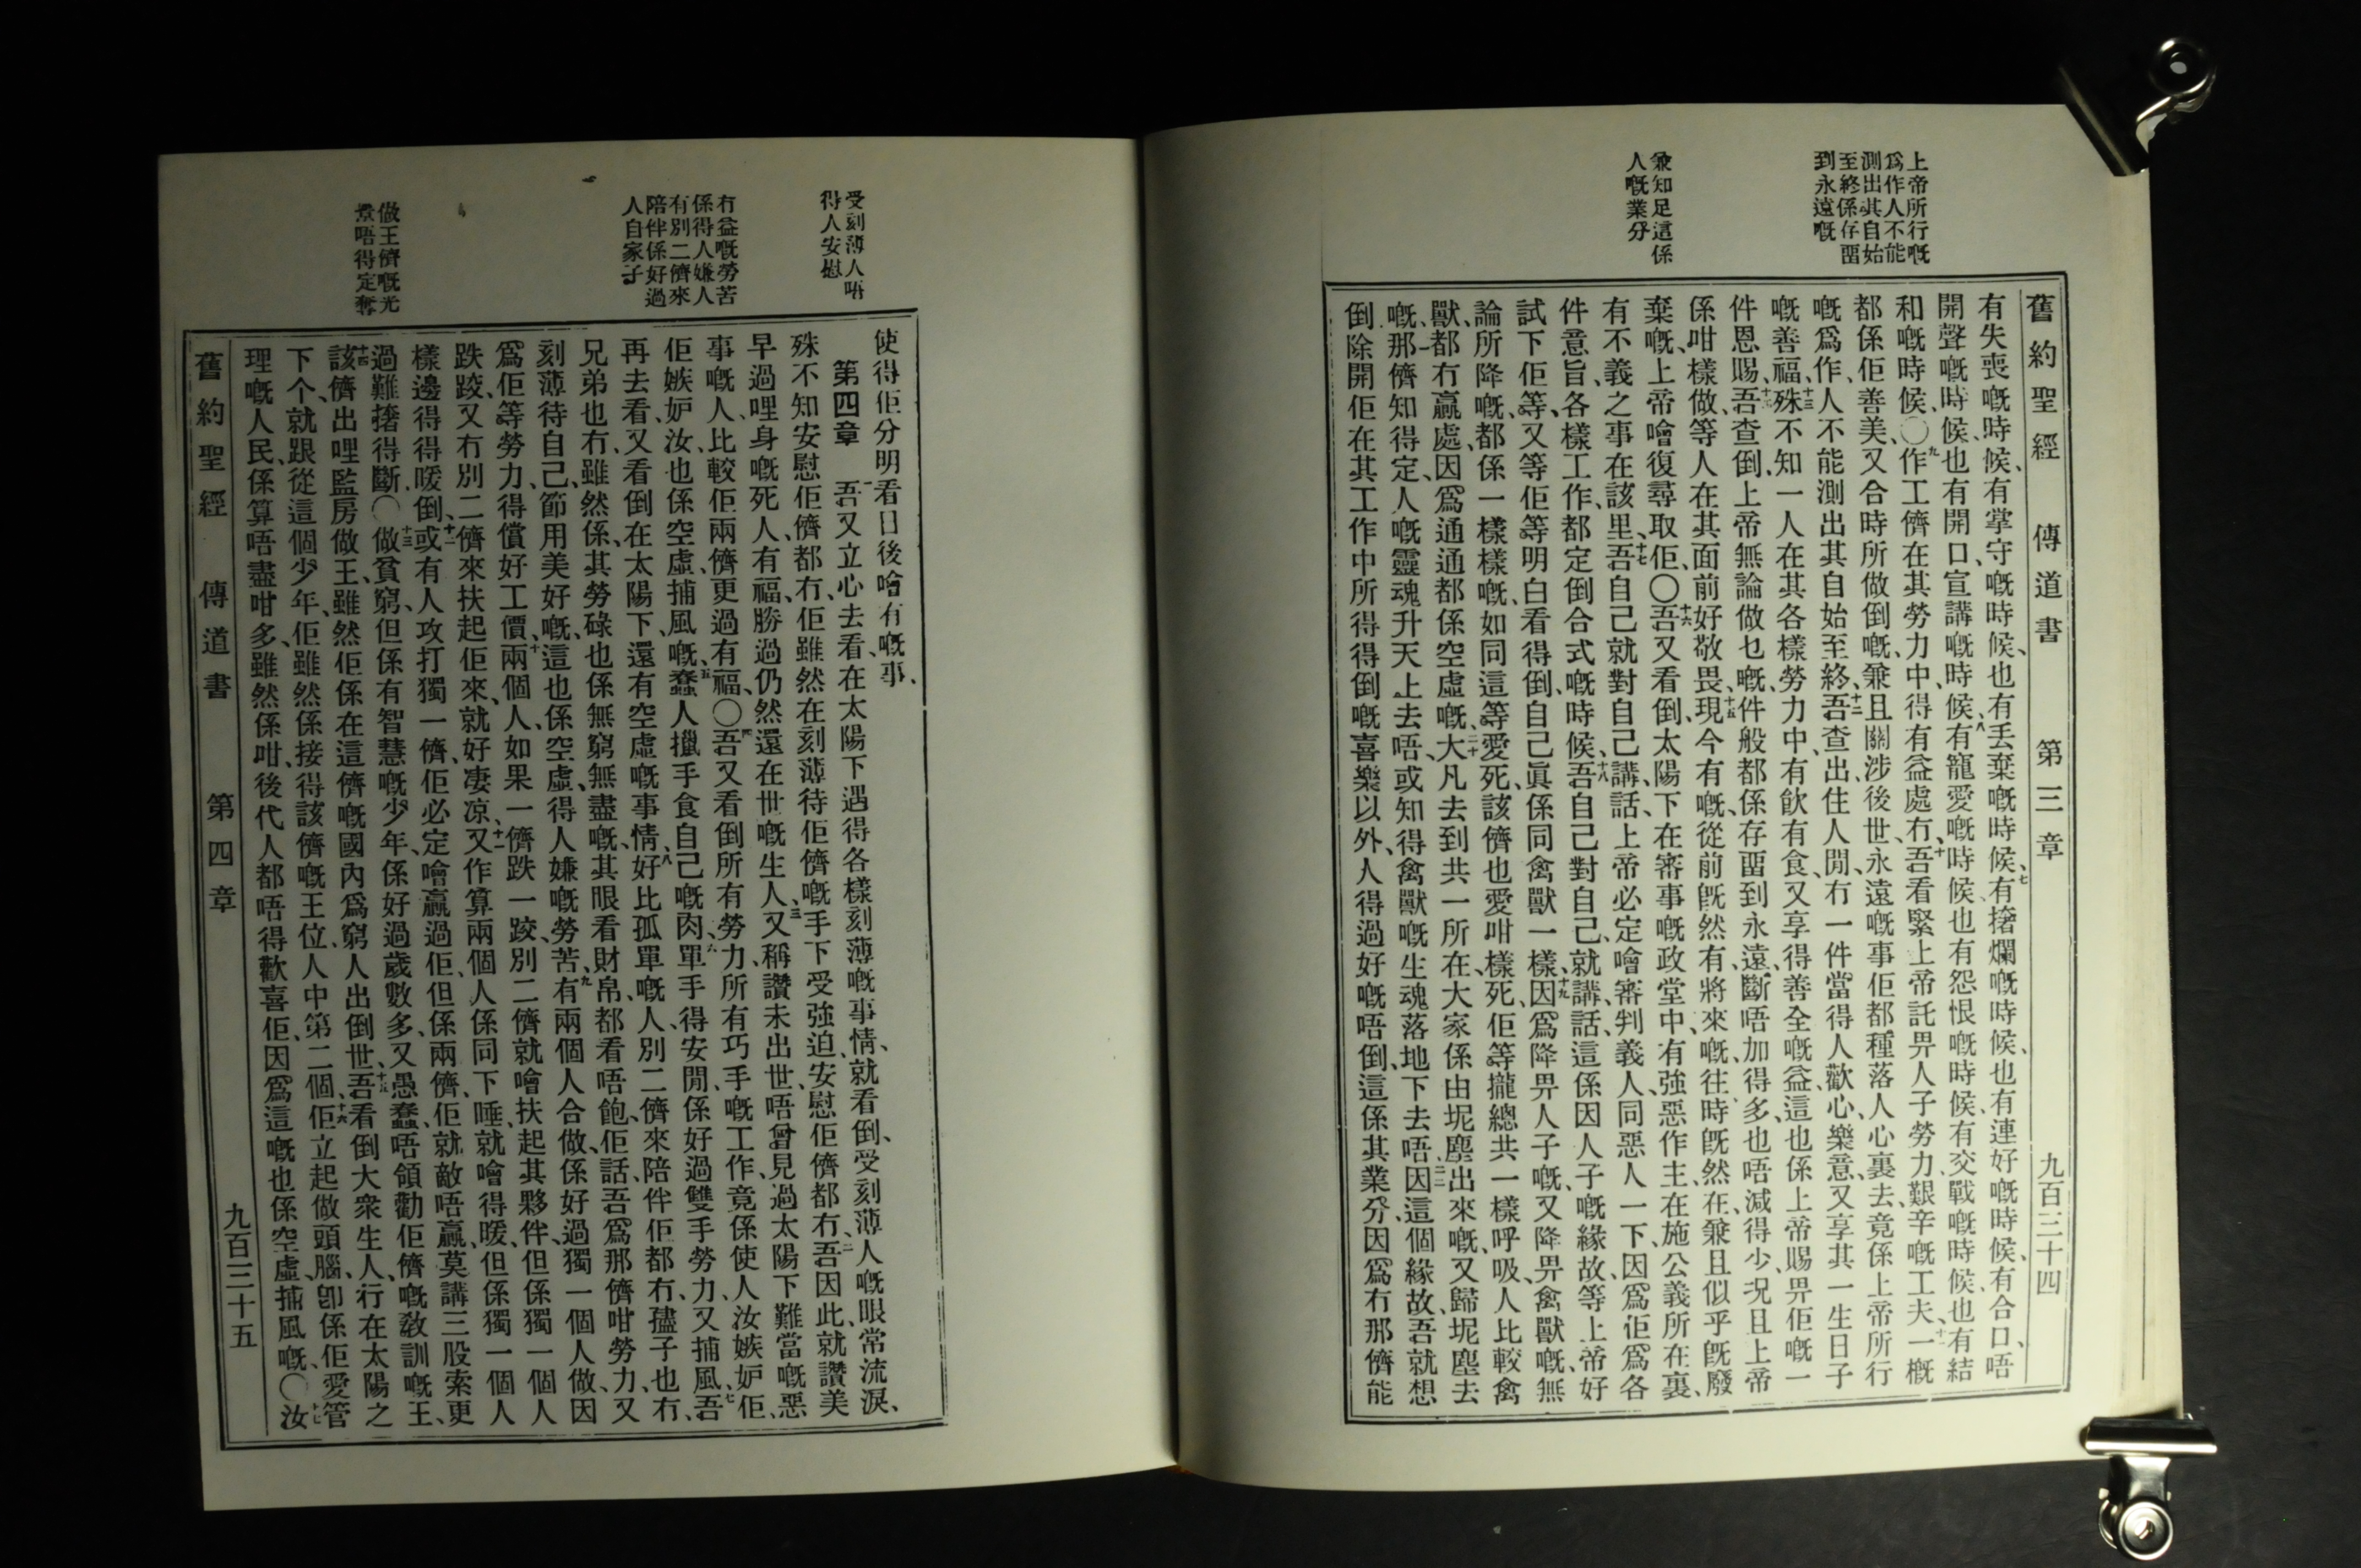 上帝所行嘅
爲作人不能
測出其自始
至終係存畱
到永遠嘅
兼知足這係
人嘅業分
舊約聖經 傳道書 第三章 九百三十四
有失喪嘅時候、有掌守嘅時候也有丟棄嘅時候、七有撦爛嘅時候、也有連好嘅時候、有合口、唔
開聲嘅時候、也有開口、宣講嘅時候、八有寵愛嘅時候也有怨恨嘅時候、有交戰嘅時候、也有結
和嘅時候、〇九作工儕在其勞力中、得有益處冇、十吾看緊上帝託畀人子勞力艱辛嘅工夫、十一一概
都係佢善美、又合時所做倒嘅、兼且關涉後世、永遠嘅事佢都種落人心裏去、竟係上帝所行
嘅爲作、人不能測出其自始至終、十二吾查出、住人間、冇一件當得人歡心樂意、又享其一生日子
嘅善福、十三殊不知一人在其各樣勞力中、有飲有食、又享得善全嘅益、這也係上帝賜畀佢嘅一
件恩賜、十四吾查倒、上帝無論做乜嘅、件般都係存畱到永遠、斷唔加得多、也唔減得少、況且上帝
係咁樣做、等人在其面前好敬畏、十五現今有嘅、從前旣然有、將來嘅、往時旣然在、兼且似乎旣廢
棄嘅、上帝噲復尋取佢、〇十六吾又看倒、太陽下在審事嘅政堂中、有強惡作主、在施公義所在裏、
有不義之事在該里、十七吾自己就對自己講話、上帝必定噲審判義人、同惡人一下、因爲佢爲各
件意旨、各樣工作、都定倒合式嘅時候、十八吾自己對自己、就講話、這係因人子嘅緣故、等上帝好
試下佢等、又等佢等明白看得倒、自己眞係同禽獸一樣、十九因爲降畀人子嘅、又降畀禽獸嘅、無
論所降嘅、都係一樣樣嘅、如同這等愛死、該儕也愛咁樣死、佢等攏總共一樣呼吸、人比較禽
獸、都冇贏處、因爲通通都係空虛嘅、二十大凡去到共一所在、大家係由坭塵出來嘅、又歸坭塵去
嘅、二一那儕知得定、人嘅靈魂升天上去唔、或知得禽獸嘅生魂落地下去唔、二二因這個緣故、吾就想
倒除開佢在其工作中所得得倒嘅喜樂以外、人得過好嘅唔倒、這係其業分、因爲冇那儕能
受刻薄人唔
得人安慰
冇益嘅勞苦
係得人嫌人
有別二儕來
陪伴係好過
人自家子
做王儕嘅光
景唔得定奪
使得佢分明看日後噲有嘅事、
第四章 一吾又立心去看、在太陽下遇得各樣刻薄嘅事情、就看倒、受刻薄人嘅眼常流淚、
殊不知安慰佢儕、都冇、佢雖然在刻薄待佢儕嘅手下受強迫、安慰佢儕都冇、二吾因此、就讚美
早過哩身嘅死人、有福、勝過仍然還在世嘅生人、三又稱讚未出世、唔曾見過太陽下難當嘅惡
事嘅人、比較佢兩儕更過有福、〇四吾又看倒所有勞力、所有巧手嘅工作、竟係使人汝嫉妒佢、
佢嫉妒汝、也係空虛、捕風嘅、五蠢人攦手食自己嘅肉、六單手得安閒、係好過雙手勞力、又捕風、七吾
再去看、又看倒在太陽下、還有空虛嘅事情、八好比孤單嘅人、別二儕來陪伴佢都冇、孻子也冇、
兄弟也冇、雖然係、其勞碌也係無窮無盡嘅、其眼看財帛、都看唔飽、佢話、吾爲那儕咁勞力、又
刻薄待自己、節用美好嘅、這也係空虛、得人嫌嘅勞苦、九有兩個人合做、係好過獨一個人做、因
爲佢等勞力、得償好工價、十兩個人、如果一儕跌一跤、別二儕就噲扶起其夥伴、但係獨一個人
跌跤、又冇別二儕來扶起佢來、就好凄凉、十一又作算兩個人係同下睡、就噲得暖、但係獨一個人
樣邊得得暖倒、十二或有人攻打獨一儕、佢必定噲贏過佢、但係兩儕、佢就敵唔贏、莫講三股索更
過難撦得斷、〇十三做貧窮、但係有智慧嘅少年、係好過歲數多、又愚蠢、唔領勸佢儕嘅敎訓嘅王、
十四該儕出哩監房做王、雖然佢係在這儕嘅國內爲窮人出倒世、十五吾看倒大衆生人、行在太陽之
下个、就跟從這個少年、佢雖然係接得該儕嘅王位、人中第二個、十六佢立起做頭腦、卽係佢愛管
理嘅人民、係算唔盡咁多、雖然係咁、後代人都唔得歡喜佢、因爲這嘅也係空虛、捕風嘅、〇十七汝
舊約聖經 傳道書 第四章 九百三十五